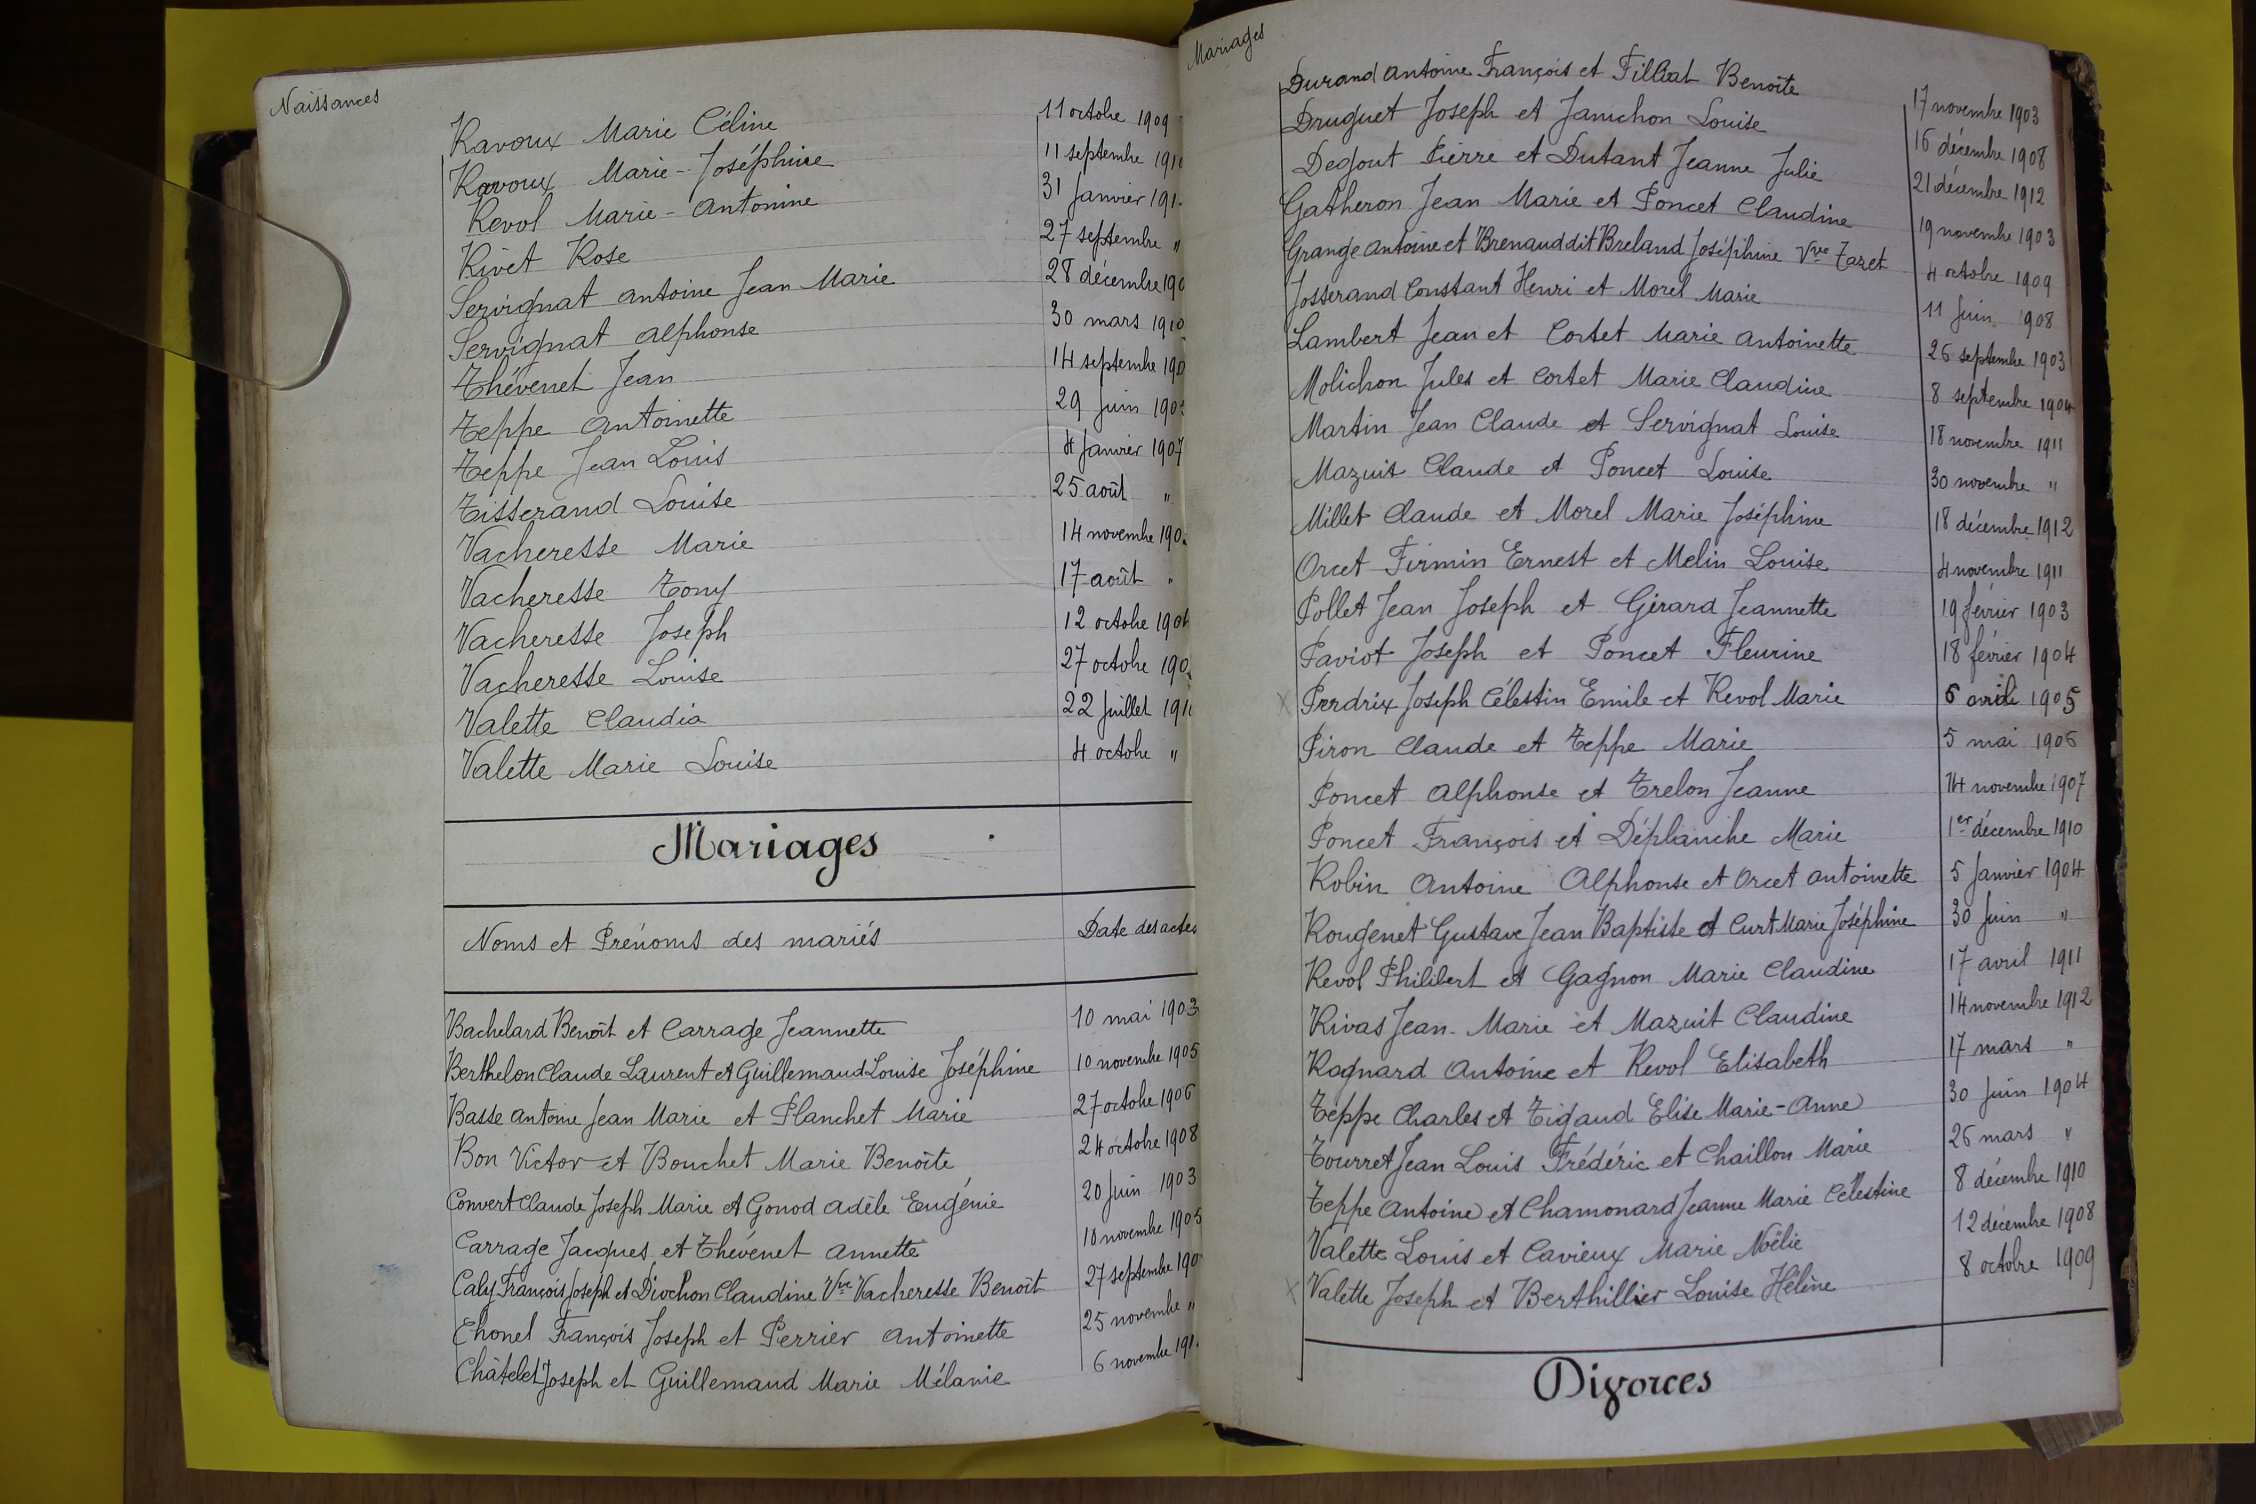 Naissances
Ravoux Marie Céline 11 octobre 1909
Ravoux Marie-Joséphine 11 septembre
Revol Marie-Antonine 31 Janvier
Rivet Rose 27 septembre "
Servignat Antoine Jean Marie 28 décembre
Servignat Alphonse 30 mars 1910
Thévenet Jean 14 septembre
Teppe Antoinette 29 Juin
Teppe Jean Louis 4 Janvier 1907
Tisserand Louise 25 août "
Vacheresse Marie 14 novembre
Vacheresse Tony 17 août "
Vacheresse Joseph 12 octobre
Vacheresse Louise 27 octobre
Valette Claudia 22 Juillet
Valette Marie Louise 4 octobre "
Mariages
Noms et Prénoms des mariés Date des actes
Bachelard Benoît et Carrage Jeannette 10 mai 1903
Berthelon Claude Laurent et Guillemaud Louise Joséphine 10 novembre 1905
Basse Antoine Jean Marie et Planchet Marie 27 octobre 1906
Bon Victor et Bouchet Marie Benoîte 24 octobre 1908
Convert Claude Joseph Marie et Gonod Adèle Eugénie 20 Juin 1903
Carrage Jacques et Thévenet Annette 10 novembre 1905
Caly François Joseph et Diochon Claudine Vve Vacheresse Benoît 27 septembre
Chonel François Joseph et Perrier Antoinette 25 novembre "
Châtelet Joseph et Guillemaud Marie Mélanie 6 novembre
Mariages
Durand Antoine François et Filliat Benoîte 17 novembre 1903
Druguet Joseph et Janichon Louise 16 décembre 1908
Degout Pierre et Dutant Jeanne Julie 21 décembre 1912
Gatheron Jean Marie et Poncet Claudine 19 novembre 1903
Grange Antoine et Brenaud dit Breland Joséphine Vve Tazet 4 octobre 1909
Josserand Constant Henri et Morel Marie 11 Juin 1908
Lambert Jean et Cortet Marie Antoinette 26 septembre 1903
Molichon Jules et Cortet Marie Claudine 8 septembre 1904
Martin Jean Claude et Servignat Louise 18 novembre 1911
Mazuit Claude et Poncet Louise 30 novembre "
Millet Claude et Morel Marie Joséphine 18 décembre 1912
Orcet Firmin Ernest et Melin Louise 4 novembre 1911
Pollet Jean Joseph et Gérard Jeannette 19 février 1903
Paviot Joseph et Poncet Fleurine 18 février 1904
x Perdrix Joseph Célestin Emile et Revol Marie 6 avril 1905
Piron Claude et Teppe Marie 5 mai 1906
Poncet Alphonse et Trelon Jeanne 14 novembre 1907
Poncet François et Déplanche Marie 1er décembre 1910
Robin Antoine Alphonse et Orcet Antoinette 5 Janvier 1904
Rougenet Gustave Jean Baptiste et Curt Marie Joséphine 30 Juin "
Revol Philibert et Gagnon Marie Claudine 17 avril 1911
Rivas Jean-Marie et Mazuit Claudine 14 novembre 1912
Rognard Antoine et Revol Elisabeth 17 mars "
Teppe Charles et Tigaud Elise Marie-Anne 30 Juin 1904
Tourret Jean Louis Frédéric et Chaillon Marie 26 mars "
Teppe Antoine et Chamonard Jeanne Marie Célestine 8 décembre 1910
Valette Louis et Cavieux Marie Noëlie 12 décembre 1908
x Valette Joseph et Berthillier Louise Hélène 8 octobre 1909
Divorces